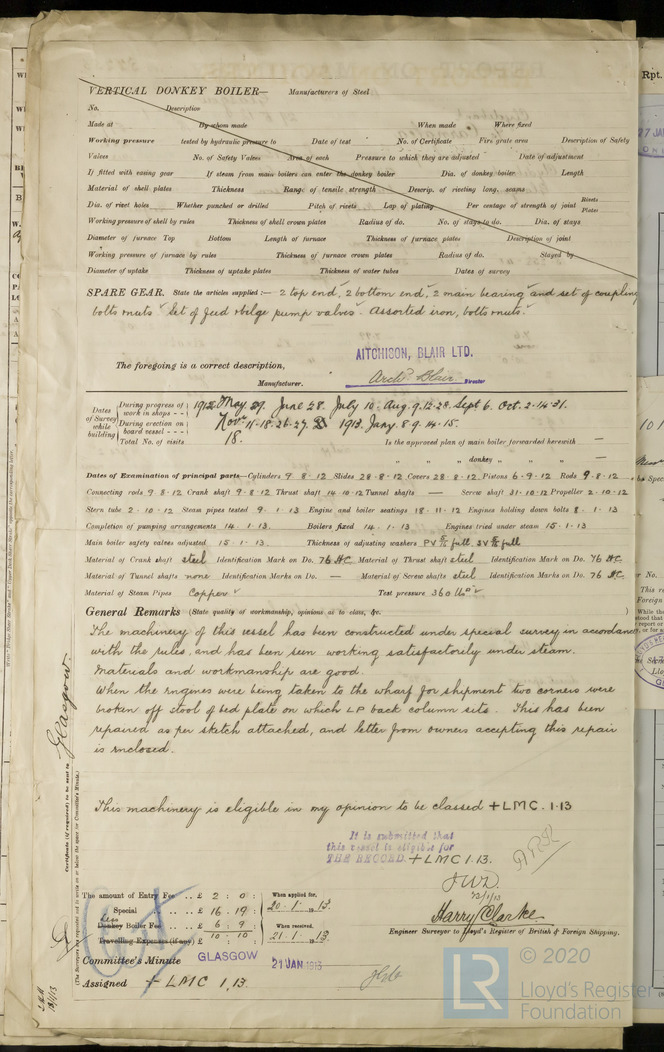 VERTICAL DONKEY BOILER— Manufacturers of Steel
No. Description
Made at By whom made When made Where fixed
Working pressure tested by hydraulic pressure to Date of test No. of Certificate Fire grate area Description of Safety
Valves No. of Safety Valves Area of each Pressure to which they are adjusted Date of adjustment
If fitted with easing gear If steam from main boilers can enter the donkey boiler Dia. of donkey boiler Length
Material of shell plates Thickness Range of tensile strength Descrip. of riveting long. seams
Dia. of rivet holes Whether punched or drilled Pitch of rivets Lap of plating Per centage of strength of joint Rivets Plates
Working pressure of shell by rules Thickness of shell crown plates Radius of do. No. of stays to do. Dia. of stays
Diameter of furnace Top Bottom Length of furnace Thickness of furnace plates Description of joint
Working pressure of furnace by rules Thickness of furnace crown plates Radius of do. Stayed by
Diameter of uptake Thickness of uptake plates Thickness of water tubes Dates of survey
SPARE GEAR. State the articles supplied:— 2 top end, 2 bottom end, 2 main bearing and set of coupling
bolts & nuts Set of feed & bilge pump valves. Assorted iron, bolts & nuts.
The foregoing is a correct description,
AITCHISON, BLAIR LTD.
Manufacturer. Archd Blair Director
Dates of Survey while building
During progress of work in shops - - 1912 May 29. June 28. July 10. Aug. 9.12.28. Sept 6. Oct. 2.14.31.
During erection on board vessel - - - Nov. 11.18.26.27. 1913. Jany. 8.9.14.15.
Total No. of visits 18. Is the approved plan of main boiler forwarded herewith —
" " " donkey " " " —
Dates of Examination of principal parts—Cylinders 9.8.12 Slides 28.8.12 Covers 28.8.12 Pistons 6.9.12 Rods 9.8.12
Connecting rods 9.8.12 Crank shaft 9.8.12 Thrust shaft 14.10.12 Tunnel shafts — Screw shaft 31.10.12 Propeller 2.10.12
Stern tube 2.10.12 Steam pipes tested 9.1.13 Engine and boiler seatings 18.11.12 Engines holding down bolts 8.1.13
Completion of pumping arrangements 14.1.13. Boilers fixed 14.1.13 Engines tried under steam 15.1.13
Main boiler safety valves adjusted 15.1.13 Thickness of adjusting washers PV full, SV full
Material of Crank shaft steel Identification Mark on Do. 76 HC Material of Thrust shaft steel Identification Mark on Do. 76 HC
Material of Tunnel shafts none Identification Marks on Do. — Material of Screw shafts steel Identification Marks on Do. 76 HC
Material of Steam Pipes Copper Test pressure 360 lbs
General Remarks (State quality of workmanship, opinions as to class, &c.
The machinery of this vessel has been constructed under special survey in accordance
with the rules, and has been seen working satisfactorily under steam.
Materials and workmanship are good.
When the engines were being taken to the wharf for shipment two corners were
broken off stool of bed plate on which LP back column sits. This has been
repaired as per sketch attached, and letter from owners accepting this repair
is enclosed.
This machinery is eligible in my opinion to be classed + LMC. 1.13
It is submitted that
this vessel is eligible for
THE RECORD. + LMC 1.13.
JWD.
The amount of Entry Fee . . £ 2 : 0 : When applied for,
Special . . . . £ 16 . 19 : 20.1.13.
Less Donkey Boiler Fee . . . £ 6 : 9 : When received,
Travelling Expenses (if any) £ 10 : 10 : 21.1.13
Harry Clarke
Engineer Surveyor to Lloyd's Register of British & Foreign Shipping.
Committee's Minute GLASGOW 21 JAN 1913
Assigned + LMC 1.13.
Glasgow.
Certificate (if required) to be sent to
(The Surveyors are requested not to write on or below the space for Committee's Minute.)
Rpt.
© 2020
LR
Lloyd's Register
Foundation